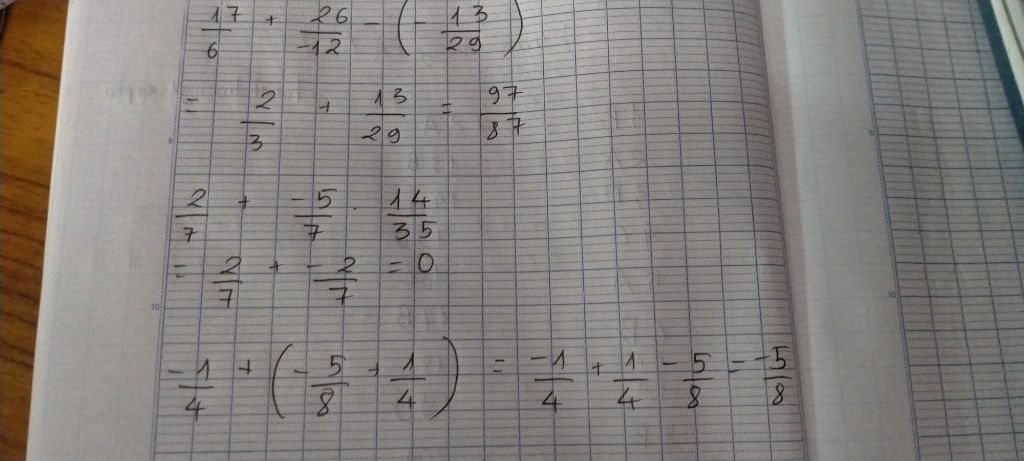 17/6 + 26/-12 - (- 13/29)
= 2/3 + 13/29 = 97/87
2/7 + -5/7 . 14/35
= 2/7 + -2/7 = 0
-1/4 + (-5/8 + 1/4) = -1/4 + 1/4 - 5/8 = -5/8